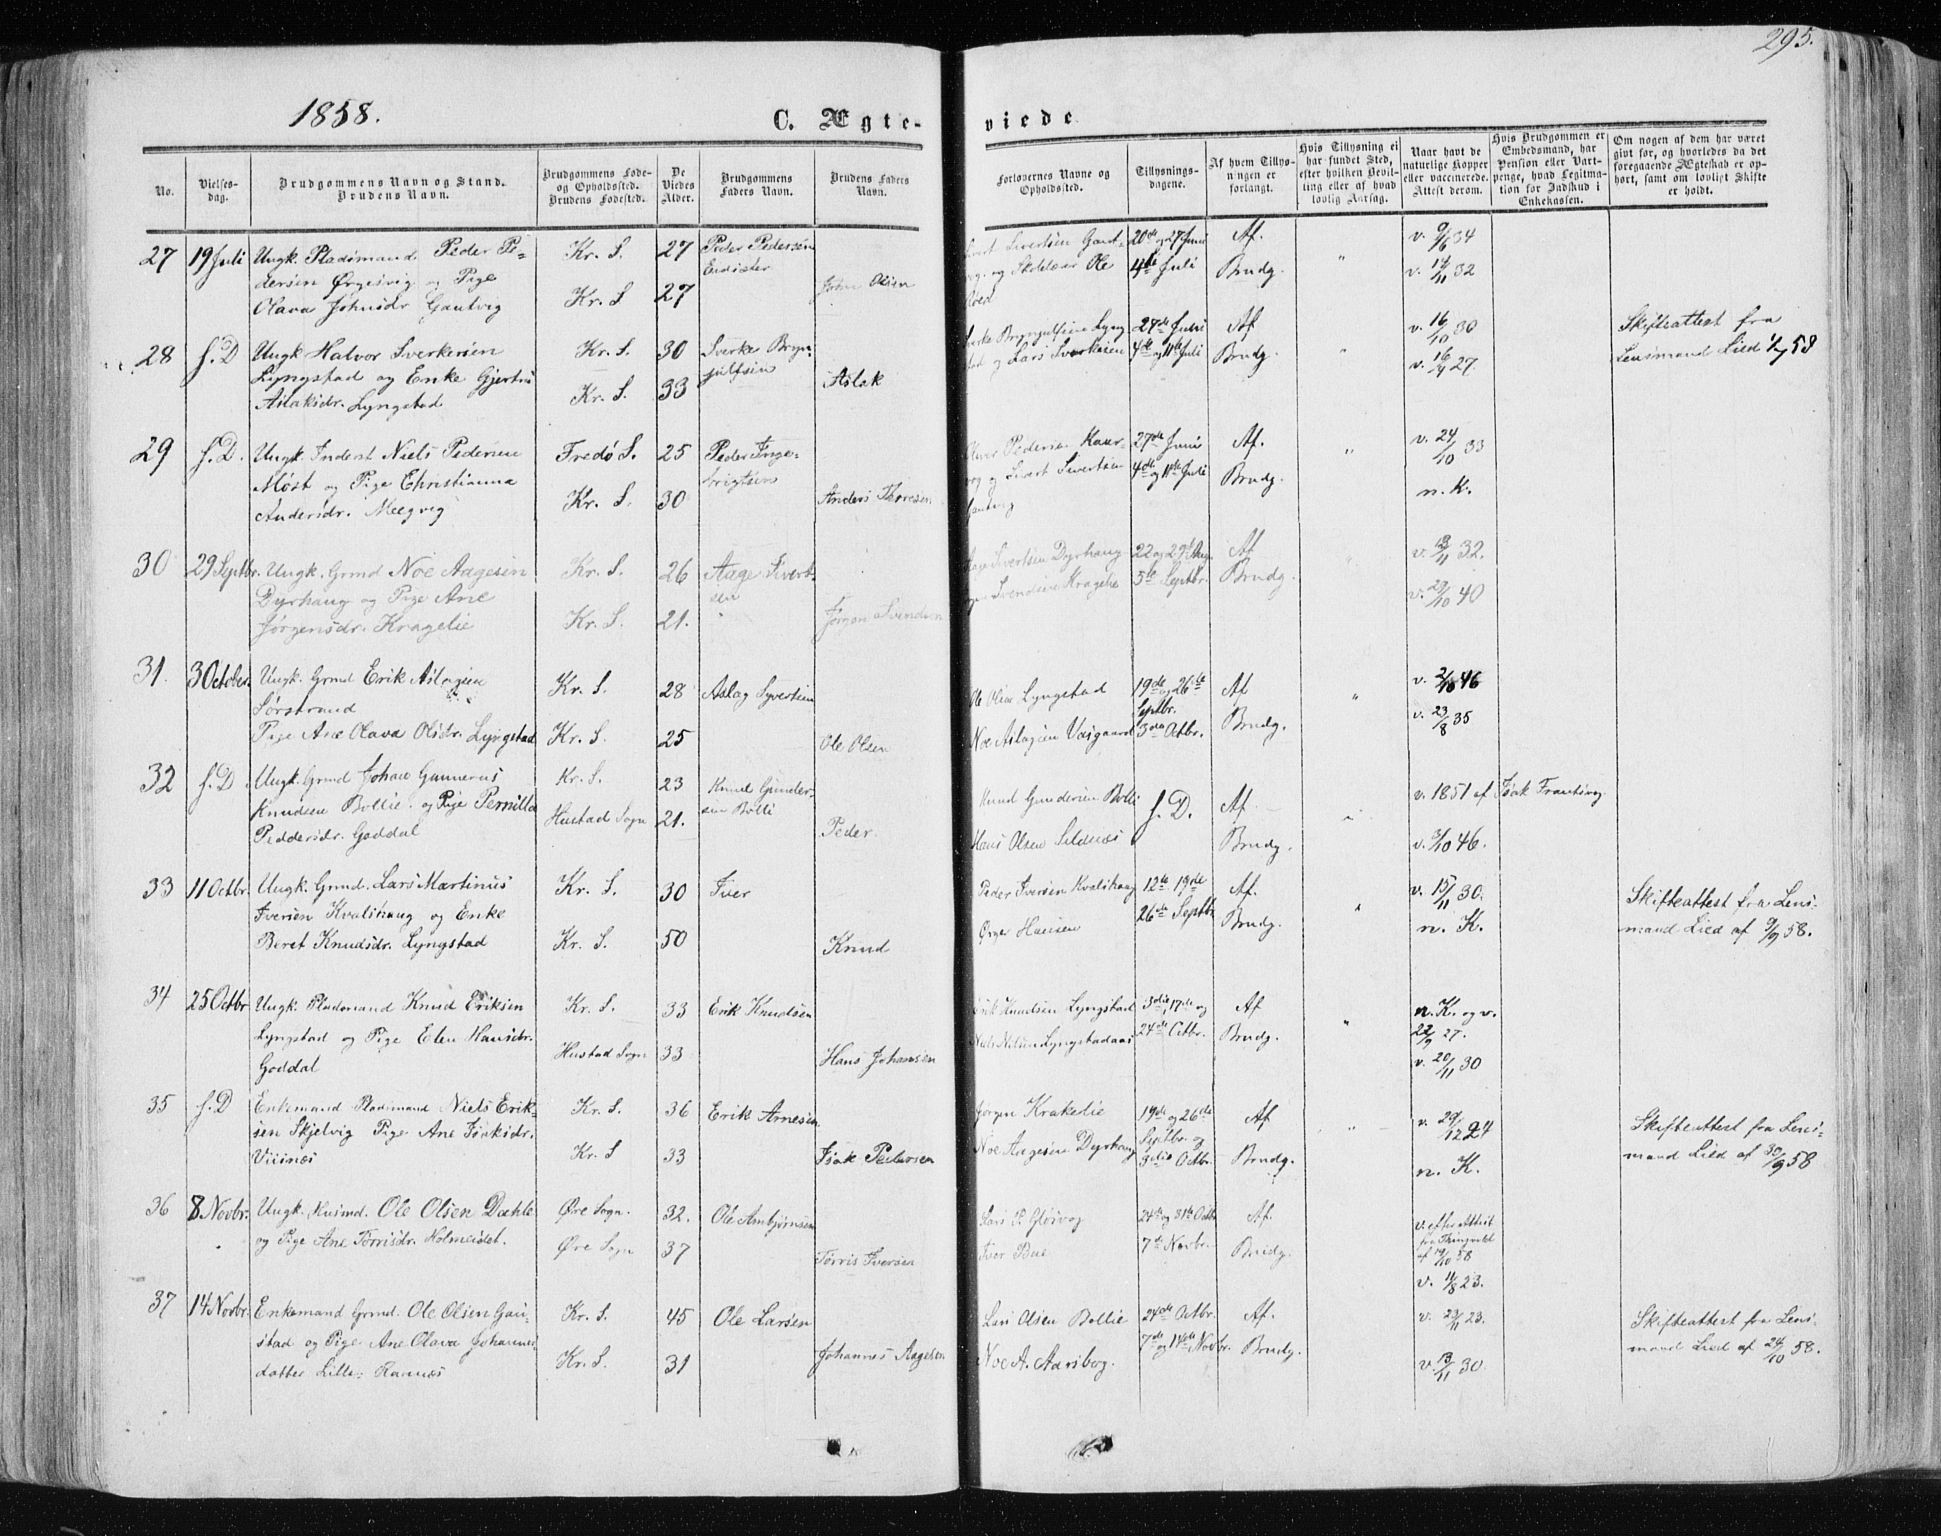 295.
1858.
C. Ægte-
viede
No.
Vielses-
dag.
Brudgommens Navn og Stand.
Brudens Navn.
Brudgommens Føde-
og Opholdssted.
Brudens Fødested.
De
Viedes
Alder.
Brudgommens
Faders Navn.
Brudens Faders
Navn.
Forlovernes Navne og
Opholdssted.
Tillysnings-
dagene.
Af hvem Tillys-
ningen er
forlangt.
Hvis Tillysning ei
har fundet Sted,
efter hvilken Bevil-
ling eller af hvad
lovlig Aarsag.
Naar havt de
naturlige Kopper
eller vaccinerede.
Attest derom.
Hvis Brudgommen er
Embedsmand, har
Pension eller Vart-
penge, hvad Legitima-
tion for Indskud i
Enkekassen.
Om nogen af dem har været
givt før, og hvorledes da det
foregaaende Ægteskab er op-
hørt, samt om lovligt Skifte
er holdt.
27 19 Juli Ungk. Pladsmand Peder Pe- Kr. S. 27 Peder Pedersen
dersen Ørgesvig og Pige
Olava Johnsdr Gautvig Kr. S 27 John Olsen
Sivertsen 20de og 27 Juni Af. " v. 9/6 34
og Ole 4de Juli Brudg. v. 14/11 32
28 f. D Ungk Halvor Sverkesen Kr. S. 30 Sverke Bryn-
Lyngstad og Enke Gjertru julfsen
Aslaksdr. Lyngstad Kr. S. 33 Aslak
Brynjulfsen Lyng 27de Juni Af v. 16/10 30 Skifteattest fra
og Lars Sverkesen 4de og 11te Juli Brudg. v. 16/9 27. Lensmand Lied 58
29 f. D. Ungk. Inderst Niels Pedersen Fredø S. 25 Peder Inge-
Møst og Pige Christianna brigtsen
Andersdr. Meegvig Kr. S. 30 Anders Thoresen
Pedersen 27de Juni Af. " v. 24/10 33
og Sivert Sivertsen 4de og 11te Juli Brudg. n. K.
30 29 Septbr. Ungk. Grmd Noe Aagesen Kr. S. 26 Aage Sivert-
Dyrhaug og Pige Ane sen
Jørgensdr. Kragelie Kr. S. 21. Jørgen Svendsen
Sivertsen Dyrhaug 22 og 29de Aug. Af " v. 13/11 32.
Svendsen Kragelie 5te Septbr. Brudg. v. 29/10 40
31. 3 October. Ungk. Grmd Erik Aslagsen Kr. S. 28 Aslag Syvertsen
Sørstrand
Pige Ane Olava Olsdr. Lyngstad Kr. S. 25 Ole Olsen
Ole Olsen Lyngstad 19de og 26te Af " v. 2/10 46
Septbr.
Noe Aslagsen Vasgaard 3die Octbr. Brudg. v. 23/8 35
32 f. D Ungk. Grmd Johan Gunnerus Kr. S. 23 Knud Gunder-
Knudsen Bollie og Pige Pernilla Hustad Sogn 21. sen Bolli
Peddersdr. Goddal Peder.
Knud Gundersen Bolli f. D. Af " v. 1851 af Isak Frantsvog
Hans Olsen Sildnæs Brudg. v. 3/10 46.
33 11 Octbr. Ungk. Grmd. Lars Martinus Kr. S. 30 Iver
Iversen Kvalshaug og Enke
Beret Knudsdr. Lyngstad Kr. S. 50 Knud
Peder Iversen Kvalshaug 12te 19de Af. " v. 15/11 30. Skifteattest fra Lens-
Ørger Hansen 26de Septbr. Brudg. n. K. mand Lied af 9/9 58.
34 25 Octbr Ungk. Pladsmand Knud Eriksen Kr. S. 33 Erik Knudsen
Lyngstad og Pige Elen Hansdr. Hustad Sogn 33 Hans Johansen
Goddal
Erik Knudsen Lyngstad 3die, 17de og Af " n. K. og v.
Niels Nilsen Lyngstadaas 24de Octbr. Brudg. 22/9 27.
v. 20/11 30
35 f. D Enkemand Pladsmand Niels Erik- Kr. S. 36 Erik Arnesen
sen Skjelvig Pige Ane Isaksdr. Kr. S 33 Isak Pedersen
Viisnæs
Jørgen Krakelie 19de og 26de Af " v. 29/12 24 Skifteattest fra Lens-
Septbr. og
Noe Aagesen Dyrhaug 3die Octbr. Brudg. n. K. mand Lied af 30/9 58
36 8 Novbr. Ungk. Husmd. Ole Olsen Dæhle Øre Sogn. 32. Ole Ambjørnsen
og Pige Ane Tørrisdr. Holmeidet. Øre Sogn 37 Tørris Iversen
Lars P. Gløsvog 24de og 31te Octbr Af. v. efter Attest
Iver Boe 7de Novbr. Brudg. fra Thingvold
af 19/10 58
v. 4/8 23.
37 14 Novbr. Enkemand Grmd. Ole Olsen Gau- Kr. S. 45 Ole Larsen
stad og Pige Ane Olava Johannes
datter Lille-Ramnæs Kr. S. 31 Johannes Aagesen
Lars Olsen Bollie 24de Octbr. Af. v. 23/11 23. Skifteattest fra Lens-
Noe A. Aarsbog. 7de og 14de Novbr. Brudg. v. 13/11 30. mand Lied af 24/10 58.